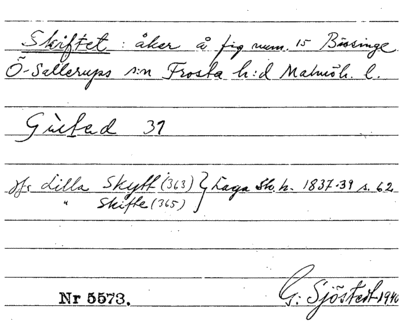 Skiftet: åker å fig num. 15 Bissinge
Ö-Sallerups s:n Frosta h:d Malmöh. l.
Gùltad 37
jfr Lilla Skytt (363) } Laga Sk. h. 1837-39 s. 62
" Skifte (365)
Nr 5573.
G: Sjöstedt 1940